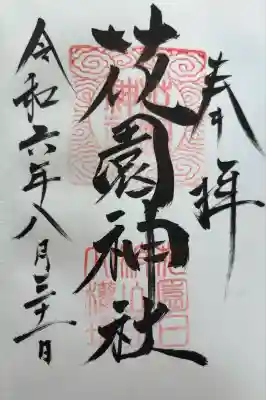 奉拝
花園神社
令和六年八月三十一日